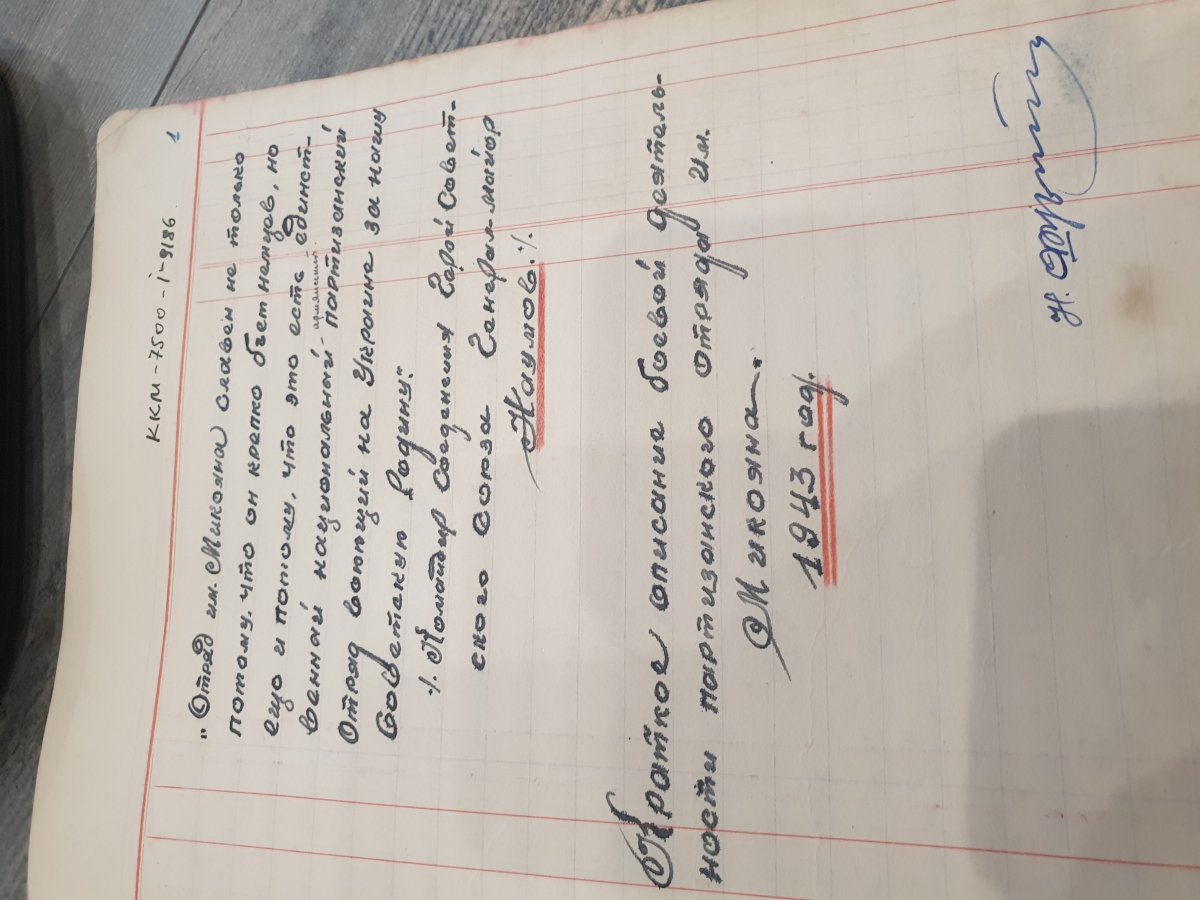 ККМ-7500-I-9186
1
"Отряд им. Микояна славен не только
потому, что он крепко бьет немцев, но
ещо и потому, что это есть единст-
венный национальный армянский партизанский
Отряд воюющий на Украине за нашу
Советскую Родину".
/. Командир соеденения Герой Совет-
ского Союза Генерал-майор
Наумов./.
Краткое описание боевой деятель-
ности партизанского отряда им.
Микояна.
1943 год.